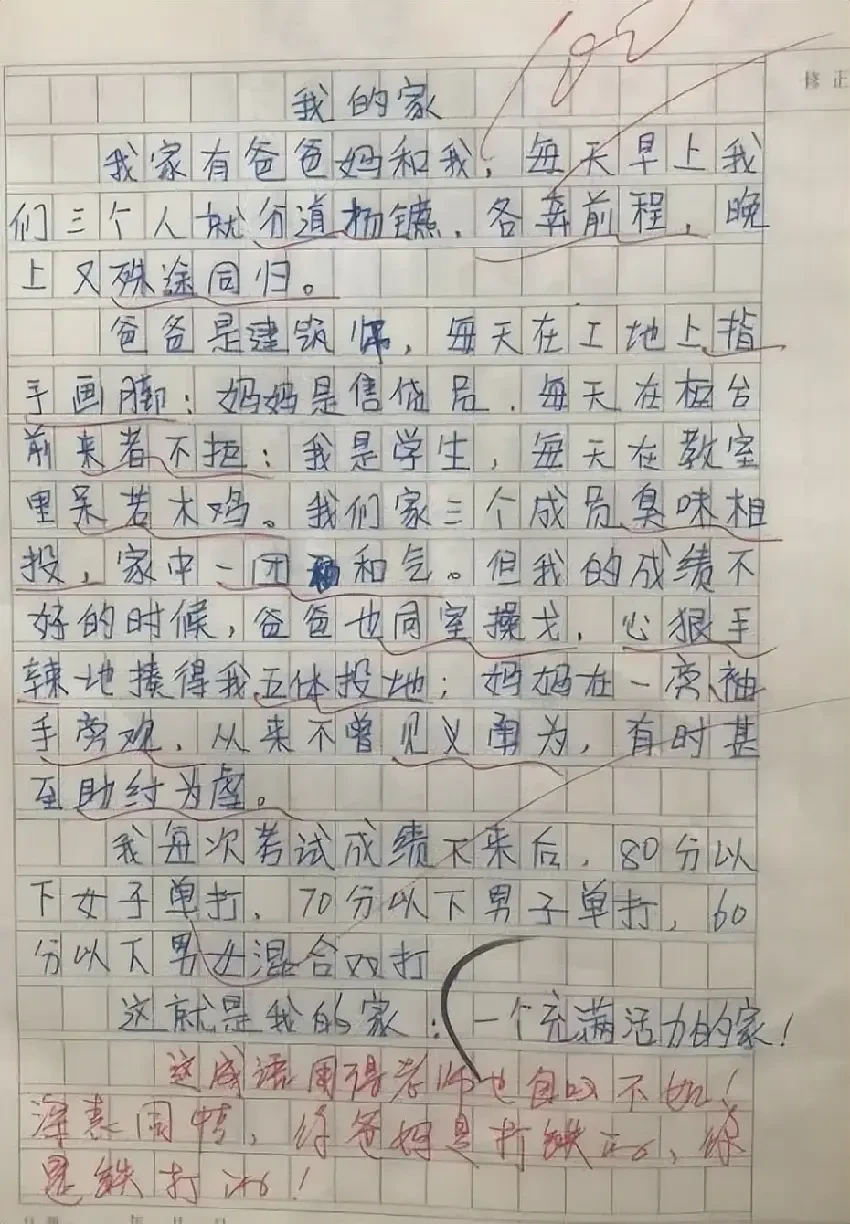 100
修正
我的家
我家有爸爸妈和我；每天早上我
们三个人就分道杨镳，各奔前程，晚
上又殊途同归。
爸爸是建筑师，每天在工地上指
手画脚；妈妈是售货员，每天在柜台
前来者不拒；我是学生，每天在教室
里呆若木鸡。我们家三个成员臭味相
投，家中一团和气。但我的成绩不
好的时候，爸爸也同室操戈，心狠手
辣地揍得我五体投地；妈妈在一旁袖
手旁观，从来不曾见义勇为，有时甚
至助纣为虐。
我每次考试成绩下来后，80分以
下女子单打，70分以下男子单打，60
分以下男女混合双打
这就是我的家：一个充满活力的家！
这成语用得老师也自叹不如！
深表同情，你爸妈是打铁的，你
是铁打的！